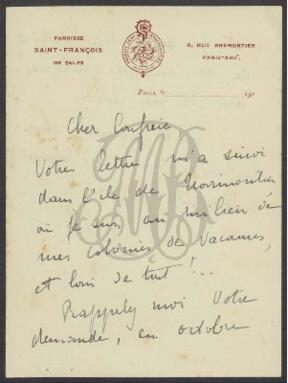 PAROISSE
SAINT-FRANÇOIS
DE SALES
6, RUE BRÉMONTIER
PARIS-XVIIe
Paris, le 191
Cher Confrère,
Votre lettre m'a suivi
dans l'île de Noirmoutier
où je suis au milieu de
mes colonies de Vacances,
et loin de tout !...
Rappelez moi Votre
demande, en octobre